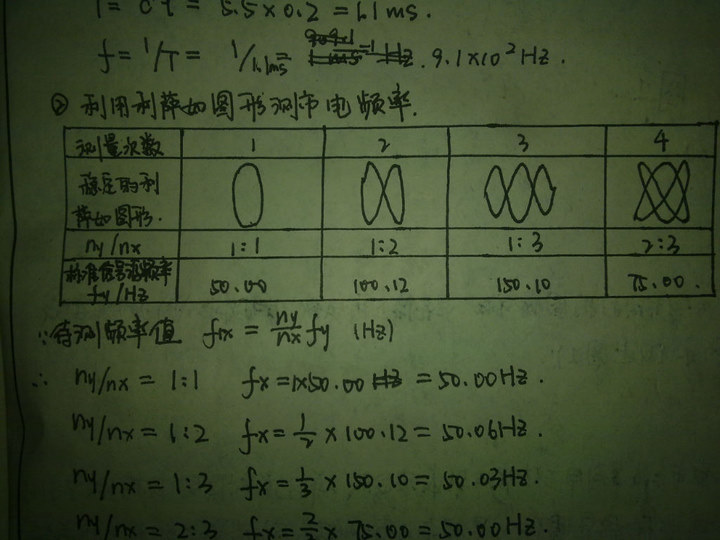 T = Ct = 5.5×0.2 = 1.1ms.
f = 1/T = 1/1.1ms = 9.1×10² Hz.
② 利用利萨如图形测市电频率.
测量次数 1 2 3 4
稳定的利
萨如图形.
ny/nx 1:1 1:2 1:3 2:3
标准信号源频率
fy/Hz 50.00 100.12 150.10 75.00.
∵待测频率值 fx = ny/nx fy (Hz)
∴ ny/nx = 1:1 fx = 1×50.00 Hz = 50.00Hz.
ny/nx = 1:2 fx = 1/2 × 100.12 = 50.06Hz.
ny/nx = 1:3 fx = 1/3 × 150.10 = 50.03Hz.
ny/nx = 2:3 fx = 2/3 × 75.00 = 50.00Hz.